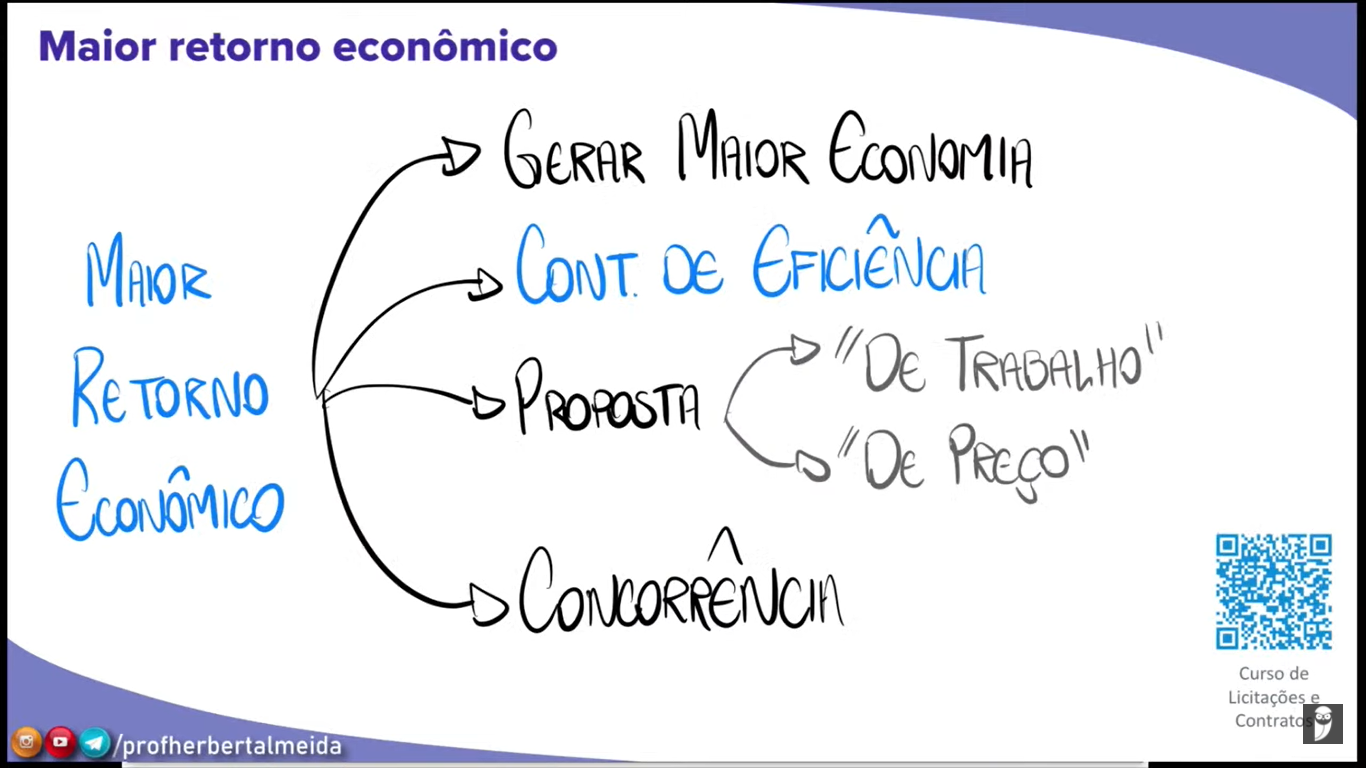 Maior retorno econômico
MAIOR
RETORNO
ECONÔMICO
GERAR MAIOR ECONOMIA
CONT. DE EFICIÊNCIA
PROPOSTA
"DE TRABALHO"
"DE PREÇO"
CONCORRÊNCIA
Curso de
Licitações e
Contratos
/profherbertalmeida